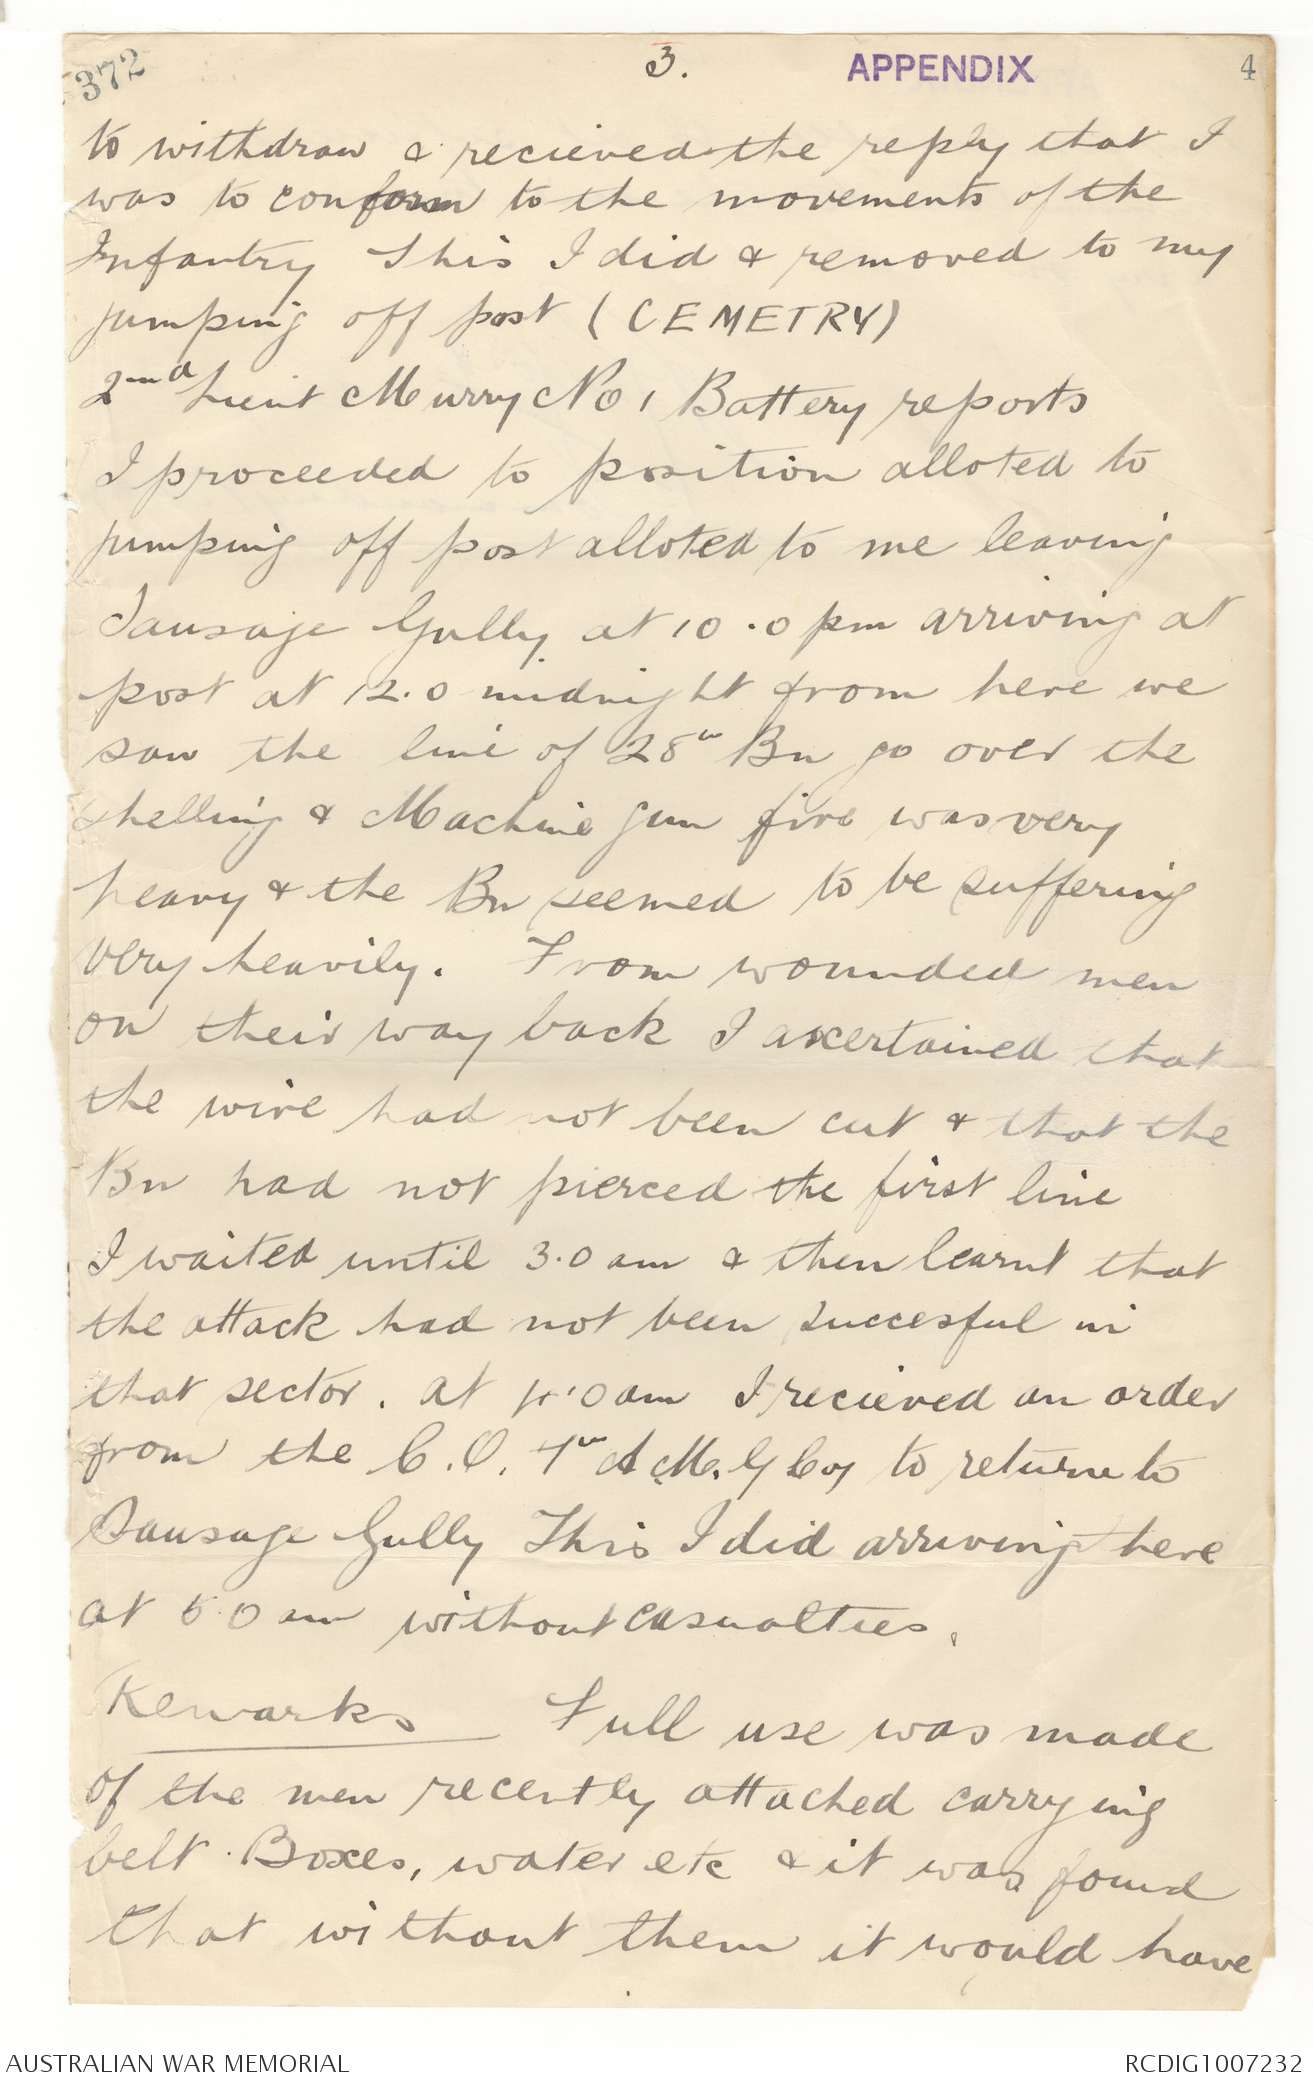 372
3.
APPENDIX
4
to withdraw & recieved the reply that I
was to conform to the movements of the
Infantry This I did & removed to my
jumping off post (CEMETRY)
2nd Lieut Murry No 1 Battery reports
I proceeded to position alloted to
jumping off post alloted to me leaving
Sausage Gully at 10.0 pm arriving at
post at 12.0 midnight from here we
saw the line of 28th Bn go over the
shelling & Machine gun fire was very
heavy & the Bn seemed to be suffering
very heavily. From wounded men
on their way back I ascertained that
the wire had not been cut & that the
Bn had not pierced the first line
I waited until 3.0 am & then learnt that
the attack had not been succesful in
that sector. at 4.0 am I recieved an order
from the C.O. 7th A.M.G Coy to return to
Sausage Gully This I did arriving there
at 5.0 am without casualties.
Remarks Full use was made
of the men recently attached carrying
belt Boxes, water etc & it was found
that without them it would have
AUSTRALIAN WAR MEMORIAL
RCDIG1007232